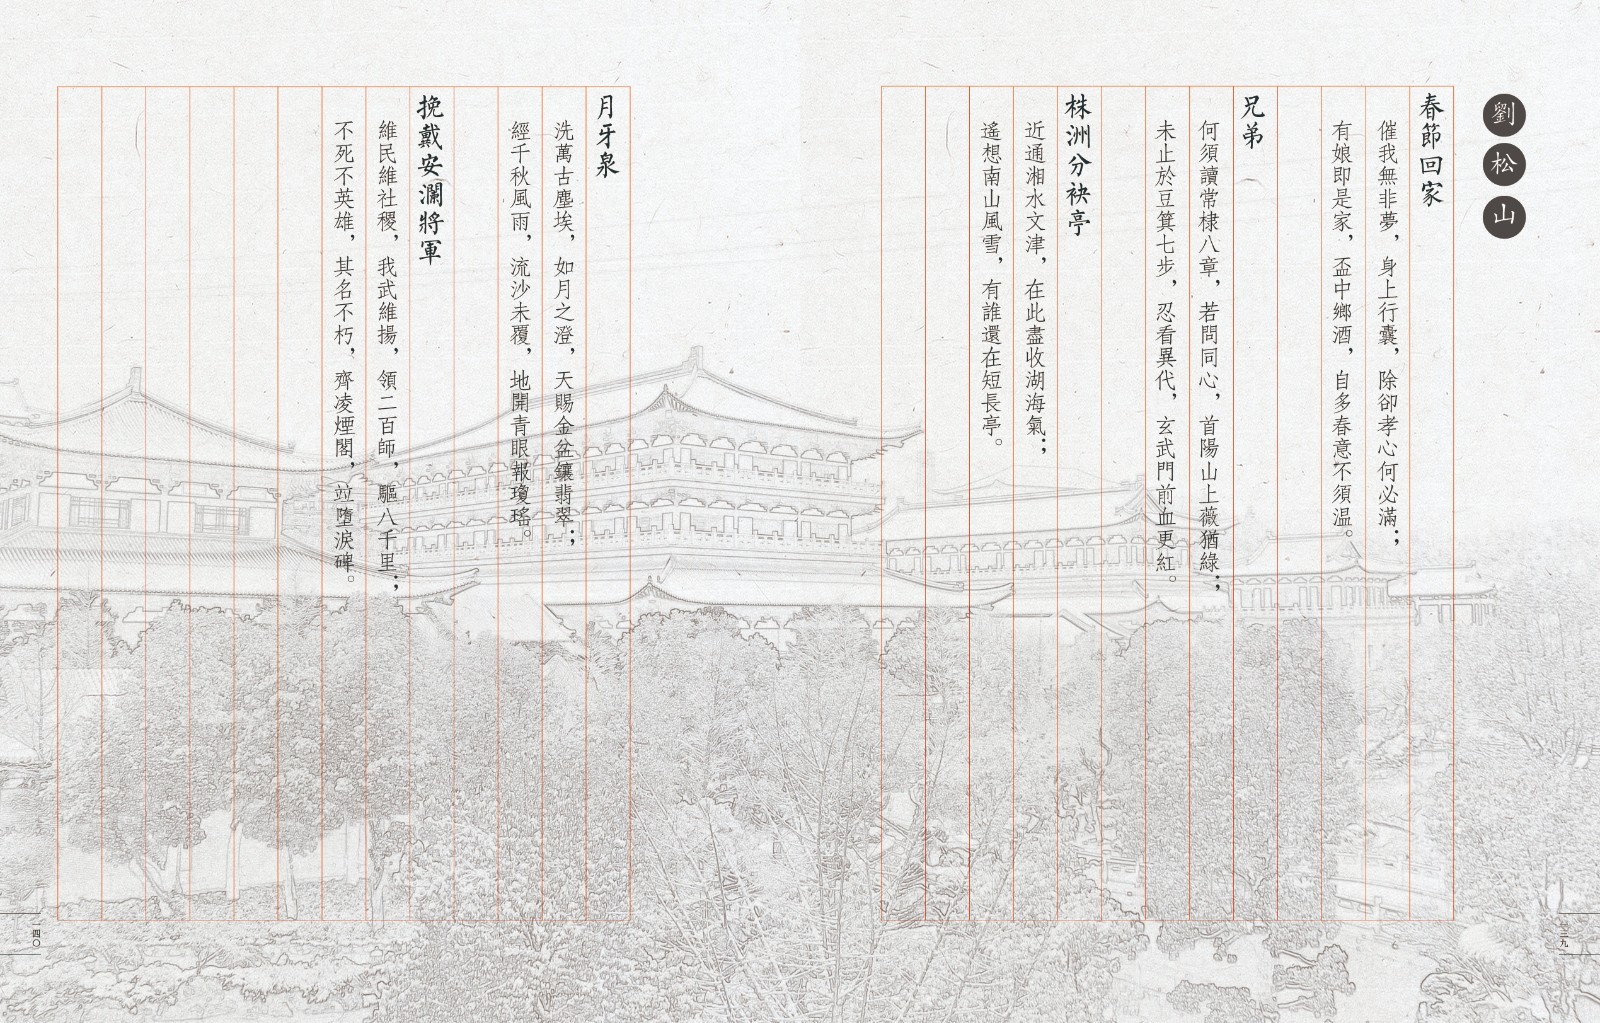 劉松山
春節回家
催我無非夢，身上行囊，除卻孝心何必滿；
有娘即是家，盃中鄉酒，自多春意不須溫。
兄弟
何須讀常棣八章，若問同心，首陽山上薇猶綠；
未止於豆箕七步，忍看異代，玄武門前血更紅。
株洲分袂亭
近通湘水文津，在此盡收湖海氣；
遙想南山風雪，有誰還在短長亭。
三九
月牙泉
洗萬古塵埃，如月之澄，天賜金盆鑲翡翠；
經千秋風雨，流沙未覆，地開青眼報瓊瑤。
挽戴安瀾將軍
維民維社稷，我武維揚，領二百師，驅八千里；
不死不英雄，其名不朽，齊凌煙閣，竝墮淚碑。
四〇